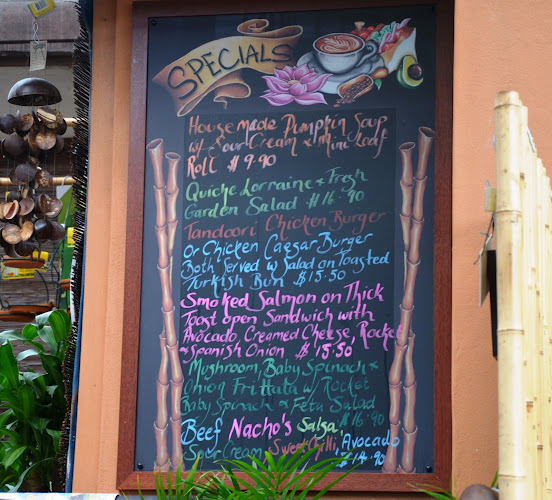 SPECIALS
House made Pumpkin Soup
w/ Sour Cream & Mini Loaf
Roll $9.90
Quiche Lorraine & Fresh
Garden Salad $16.90
Tandoori Chicken Burger
Or Chicken Caesar Burger
Both Served w/ Salad on Toasted
Turkish Bun $15.50
Smoked Salmon on Thick
Toast open Sandwich with
Avocado, Creamed Cheese, Rocket
& Spanish Onion $15.50
Mushroom, Baby Spinach &
Onion Frittata w/ Rocket
Baby Spinach & Feta Salad
$16.90
Beef Nacho's Salsa
Sour Cream, Sweet Chilli, Avocado
$14.90